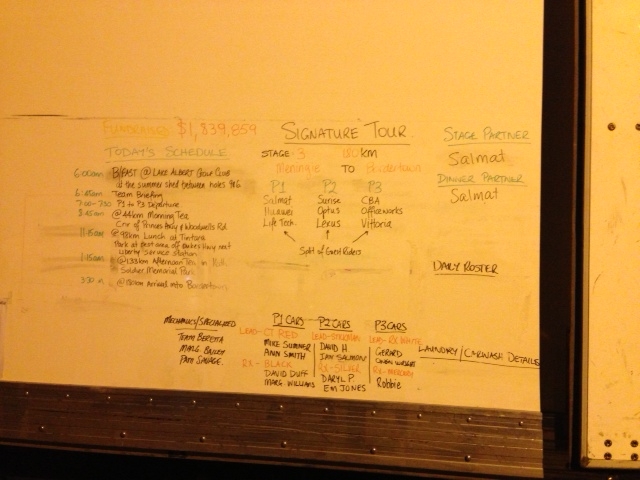 FUNDRAISING $1,839,859
TODAY'S SCHEDULE
6:00am B/FAST @ LAKE ALBERT GOLF CLUB
at the summer shed between holes 9&6
6:45am Team Briefing
7:00-7:30 P1 to P3 Departure
8:45am @44km Morning Tea
Cnr of Princes Hwy & Woodwells Rd
11:15am @98km Lunch at Tintinara
Park at rest area off Dukes Hwy next
Liberty Service Station
1:15am @133km Afternoon Tea in Keith
Soldier Memorial Park
3:30 @180km Arrival into Bordertown
SIGNATURE TOUR
STAGE 3 180km
Meningie TO Bordertown
P1 P2 P3
Salmat Sunrise CBA
Huawei Optus Officeworks
Life Tech. Lexus Vittoria
Split of Guest Riders
STAGE PARTNER
Salmat
DINNER PARTNER
Salmat
DAILY ROSTER
MECHANICS/SPECIALIZED
TEAM BERETTA
MARG BAILEY
PAM SAVAGE
P1 CARS
LEAD-CT RED
MIKE SUMNER
ANN SMITH
RX-BLACK
DAVID DUFF
MARG. WILLIAMS
P2 CARS
DAVID H
IAN SALMON
RX-SILVER
DARYL P.
EM JONES
P3 CARS
LEAD-RX WHITE
GERARD
RX-MERCURY
Robbie
LAUNDRY/CARWASH DETAILS